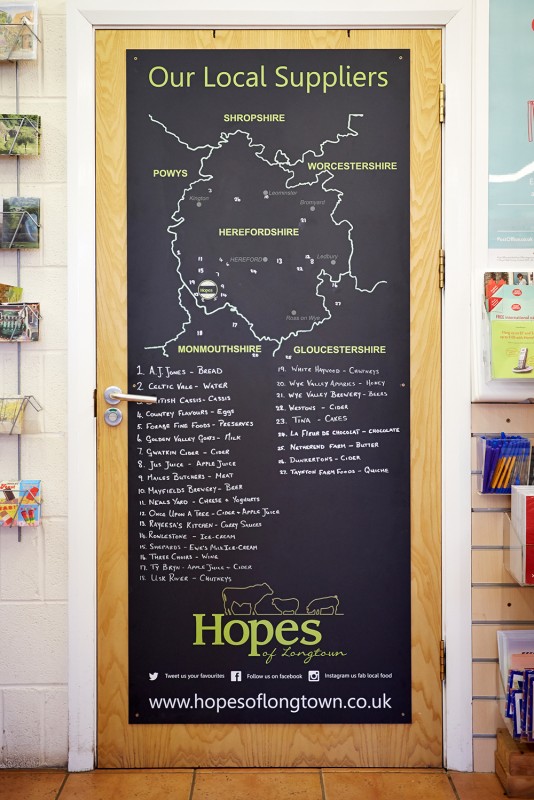 Our Local Suppliers
SHROPSHIRE
WORCESTERSHIRE
POWYS
Leominster
Kington
Bromyard
HEREFORDSHIRE
HEREFORD
Ledbury
Hopes
Ross on Wye
MONMOUTHSHIRE
GLOUCESTERSHIRE
1. A.J. JONES - BREAD
2. CELTIC VALE - WATER
BRITISH CASSIS - CASSIS
4. COUNTRY FLAVOURS - EGGS
5. FORAGE FINE FOODS - PRESERVES
6. GOLDEN VALLEY GOATS - MILK
7. GWATKIN CIDER - CIDER
8. JUS JUICE - APPLE JUICE
9. MAILES BUTCHERS - MEAT
10. MAYFIELDS BREWERY - BEER
11. NEALS YARD - CHEESE + YOGHURTS
12. ONCE UPON A TREE - CIDER + APPLE JUICE
13. RAYEESA'S KITCHEN - CURRY SAUCES
14. ROWLESTONE - ICE-CREAM
15. SHEPARDS - EWE'S MILK ICE-CREAM
16. THREE CHOIRS - WINE
17. TY BRYN - APPLE JUICE + CIDER
18. USK RIVER - CHUTNEYS
19. WHITE HAYWOOD - CHUTNEYS
20. WYE VALLEY APIARIES - HONEY
21. WYE VALLEY BREWERY - BEERS
22. WESTONS - CIDER
23. TINA - CAKES
24. LA FLEUR DE CHOCOLAT - CHOCOLATE
25. NETHEREND FARM - BUTTER
26. DUNKERTONS - CIDER
27. TAYNTON FARM FOODS - QUICHE
Hopes
of Longtown
Tweet us your favourites
Follow us on facebook
Instagram us fab local food
www.hopesoflongtown.co.uk